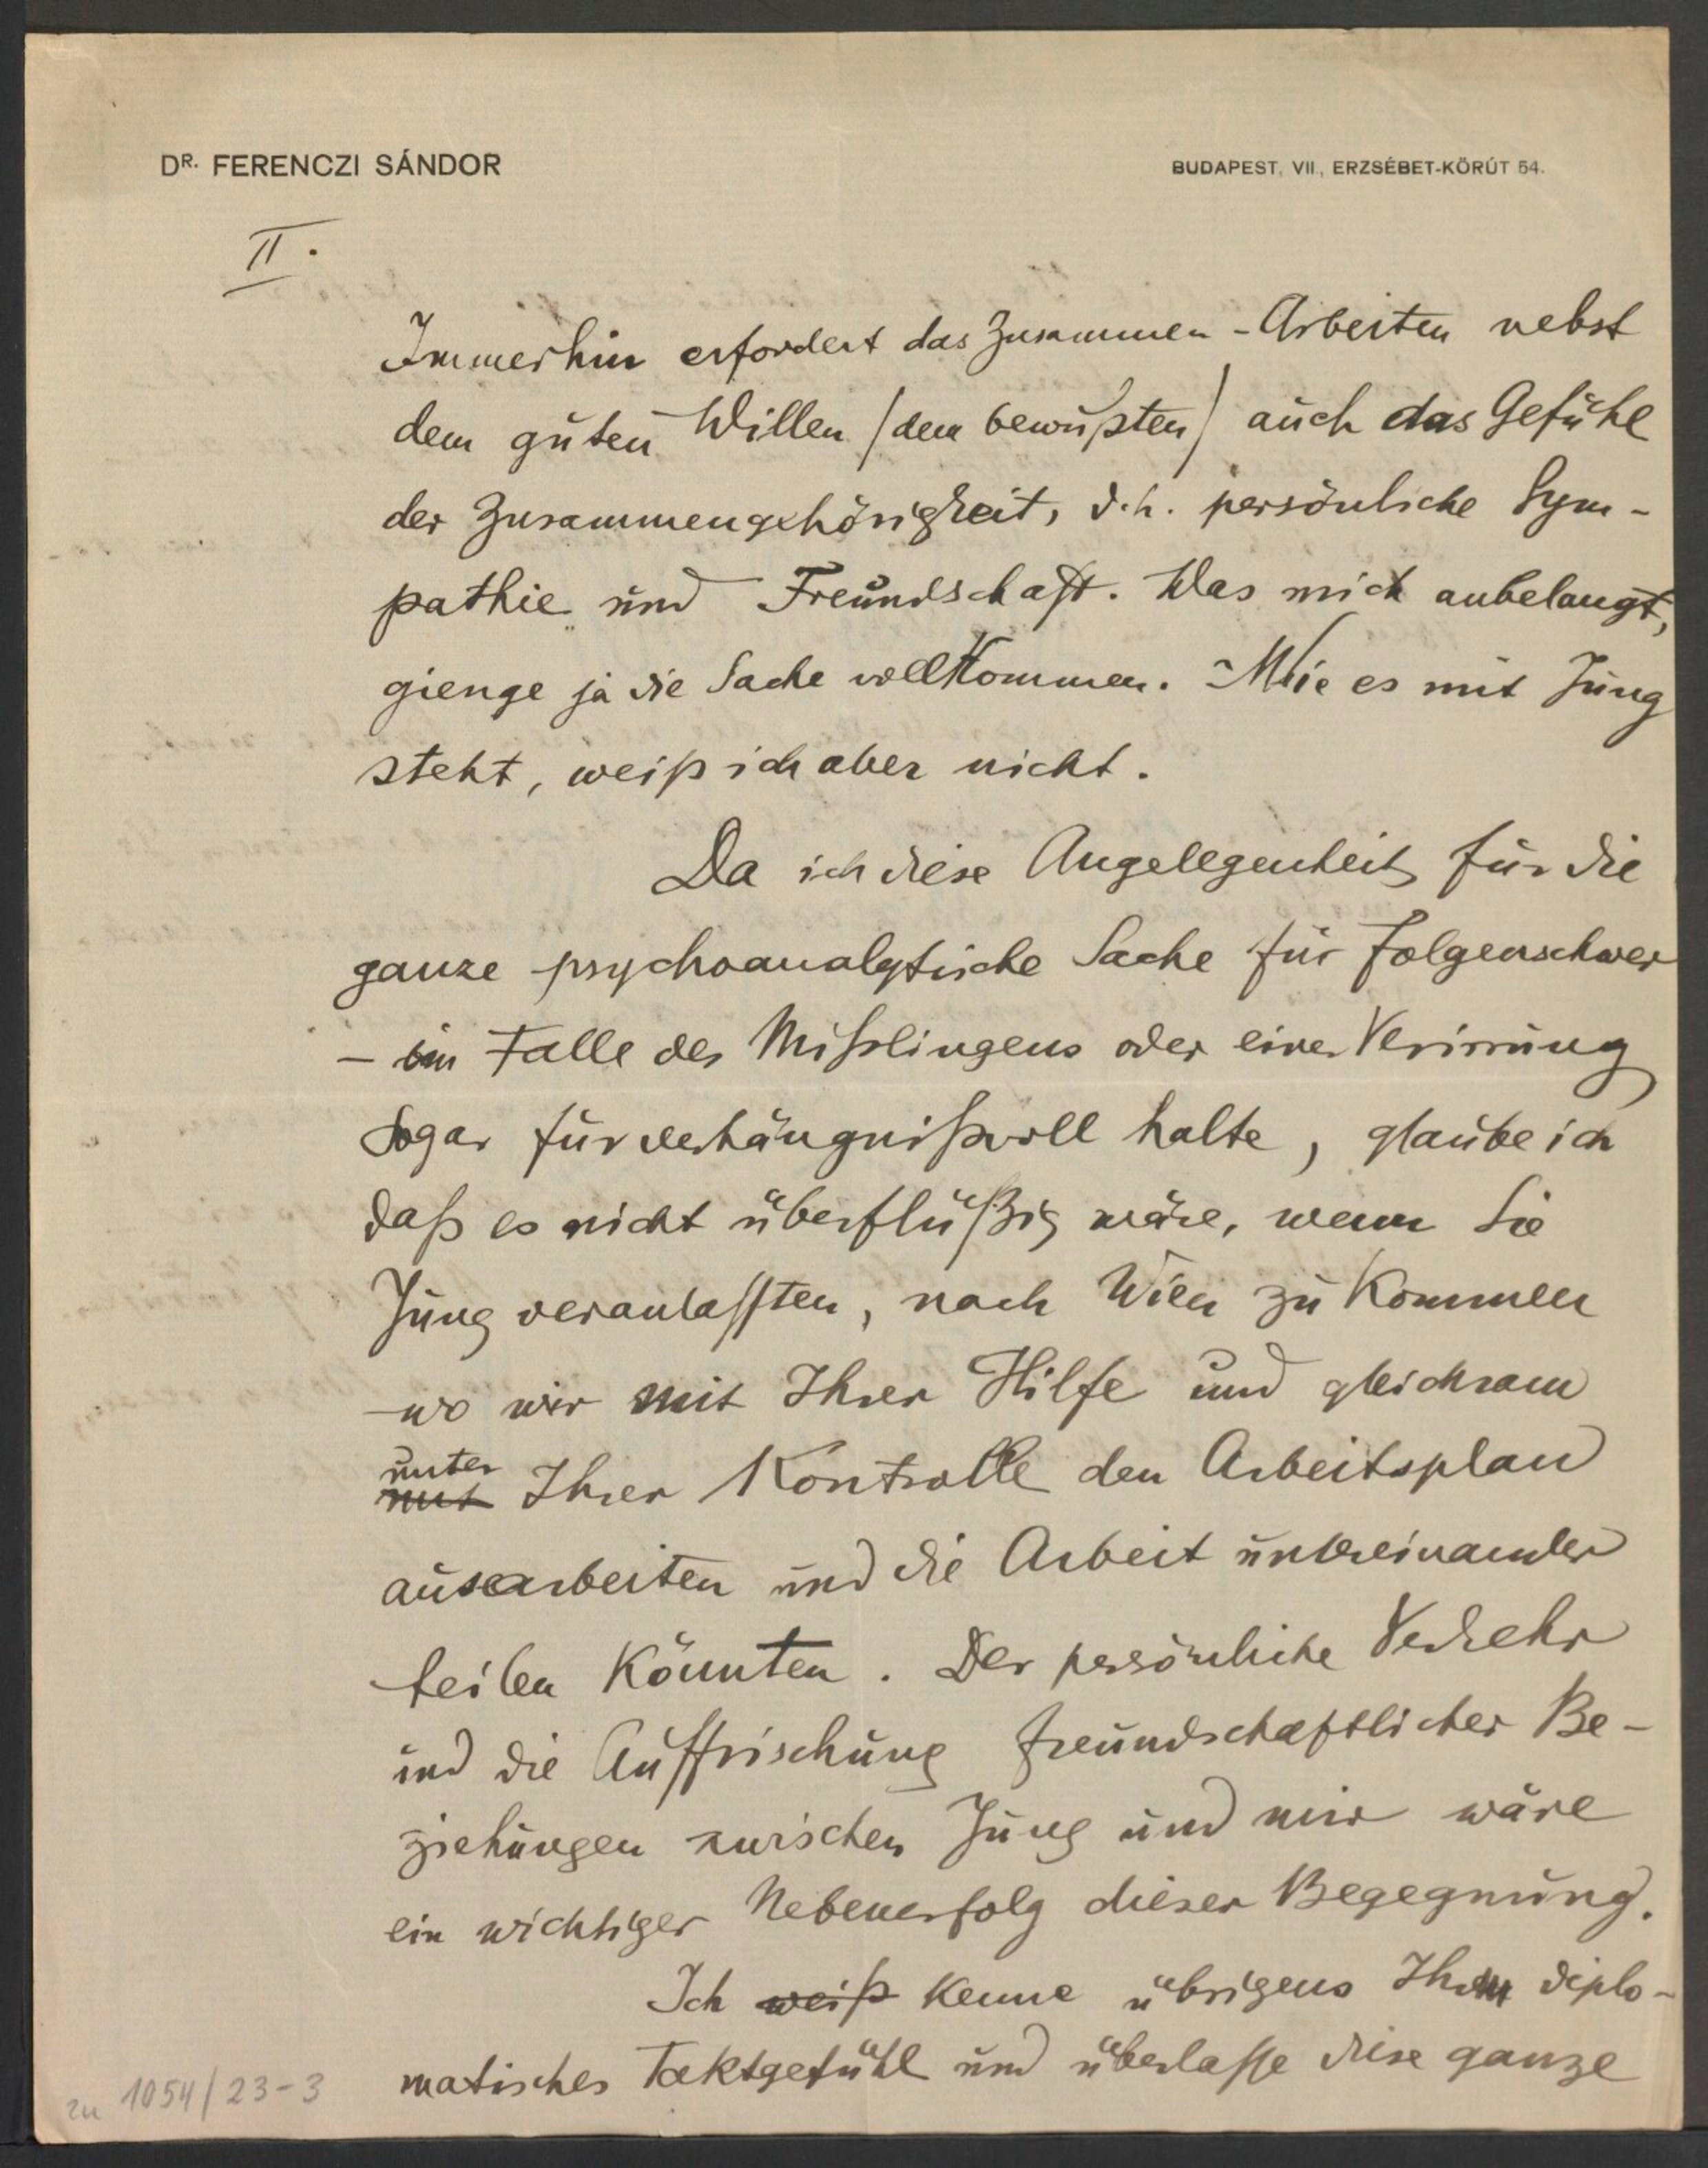 DR. FERENCZI SÁNDOR
BUDAPEST, VII., ERZSÉBET-KÖRÚT 54.
II.
Immerhin erfordert das Zusammen-Arbeiten nebst
dem guten Willen /dem bewußten/ auch das Gefühl
der Zusammengehörigkeit, d.h. persönliche Sym-
pathie und Freundschaft. Was mich anbelangt,
gienge ja die Sache vollkommen. Wie es mit Jung
steht, weiß ich aber nicht.
Da ich diese Angelegenheit für die
ganze psychoanalytische Sache für folgenschwer
- im Falle des Mißlingens oder einer Verirrung
sogar für verhängnißvoll halte, glaube ich
daß es nicht überflüßig wäre, wenn Sie
Jung veranlassten, nach Wien zu kommen
wo wir mit Ihrer Hilfe und gleichsam
unter
mit Ihrer Kontrolle den Arbeitsplan
ausarbeiten und die Arbeit untereinander
teilen könnten. Der persönliche Verkehr
und die Auffrischung freundschaftlicher Be-
ziehungen zwischen Jung und mir wäre
ein wichtiger Nebenerfolg dieser Begegnung.
Ich weiß kenne übrigens Ihr diplo-
matisches Taktgefühl und überlasse diese ganze
zu 1054/23-3